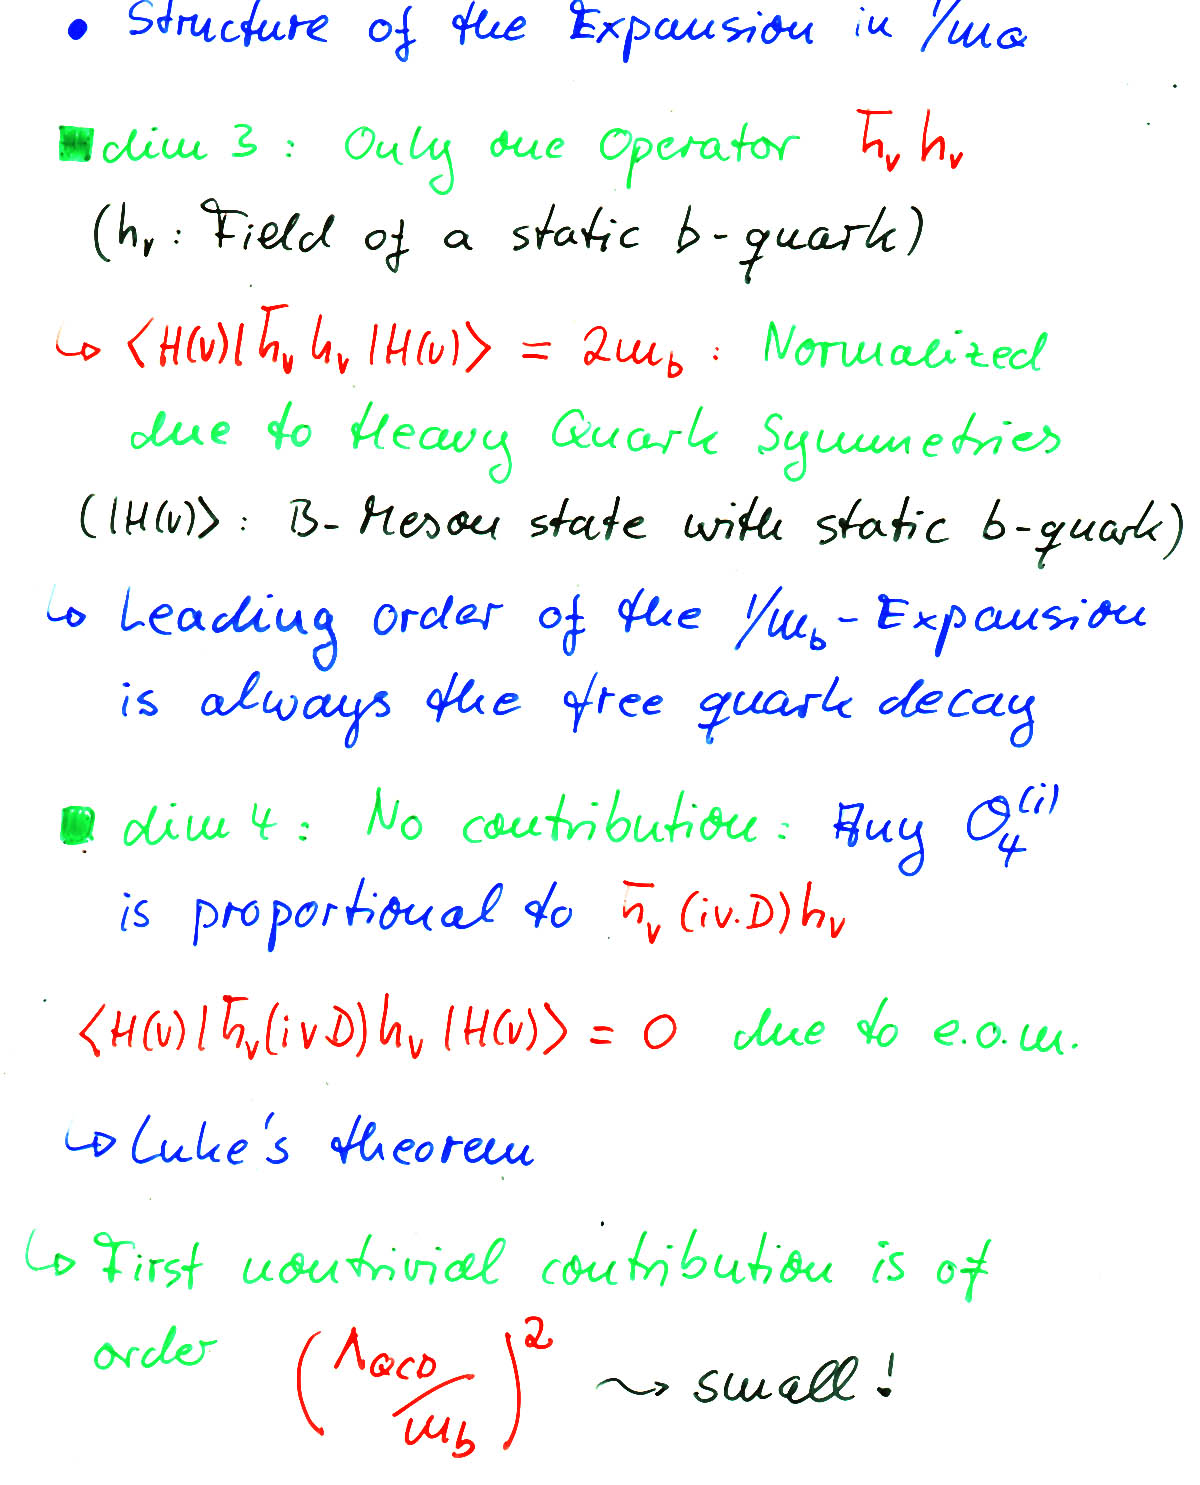 • Structure of the Expansion in 1/mQ
dim 3: Only one Operator h̄ᵥ hᵥ
(hᵥ: Field of a static b-quark)
↳ ⟨H(v)| h̄ᵥ hᵥ |H(v)⟩ = 2m_b : Normalized
due to Heavy Quark Symmetries
(|H(v)⟩: B-Meson state with static b-quark)
↳ Leading order of the 1/m_b-Expansion
is always the free quark decay
dim 4: No contribution: Any O₄⁽ⁱ⁾
is proportional to h̄ᵥ (iv.D) hᵥ
⟨H(v)| h̄ᵥ (ivD) hᵥ |H(v)⟩ = 0 due to e.o.m.
↳ Luke's theorem
↳ First nontrivial contribution is of
order (Λ_QCD/m_b)² ⇝ small!